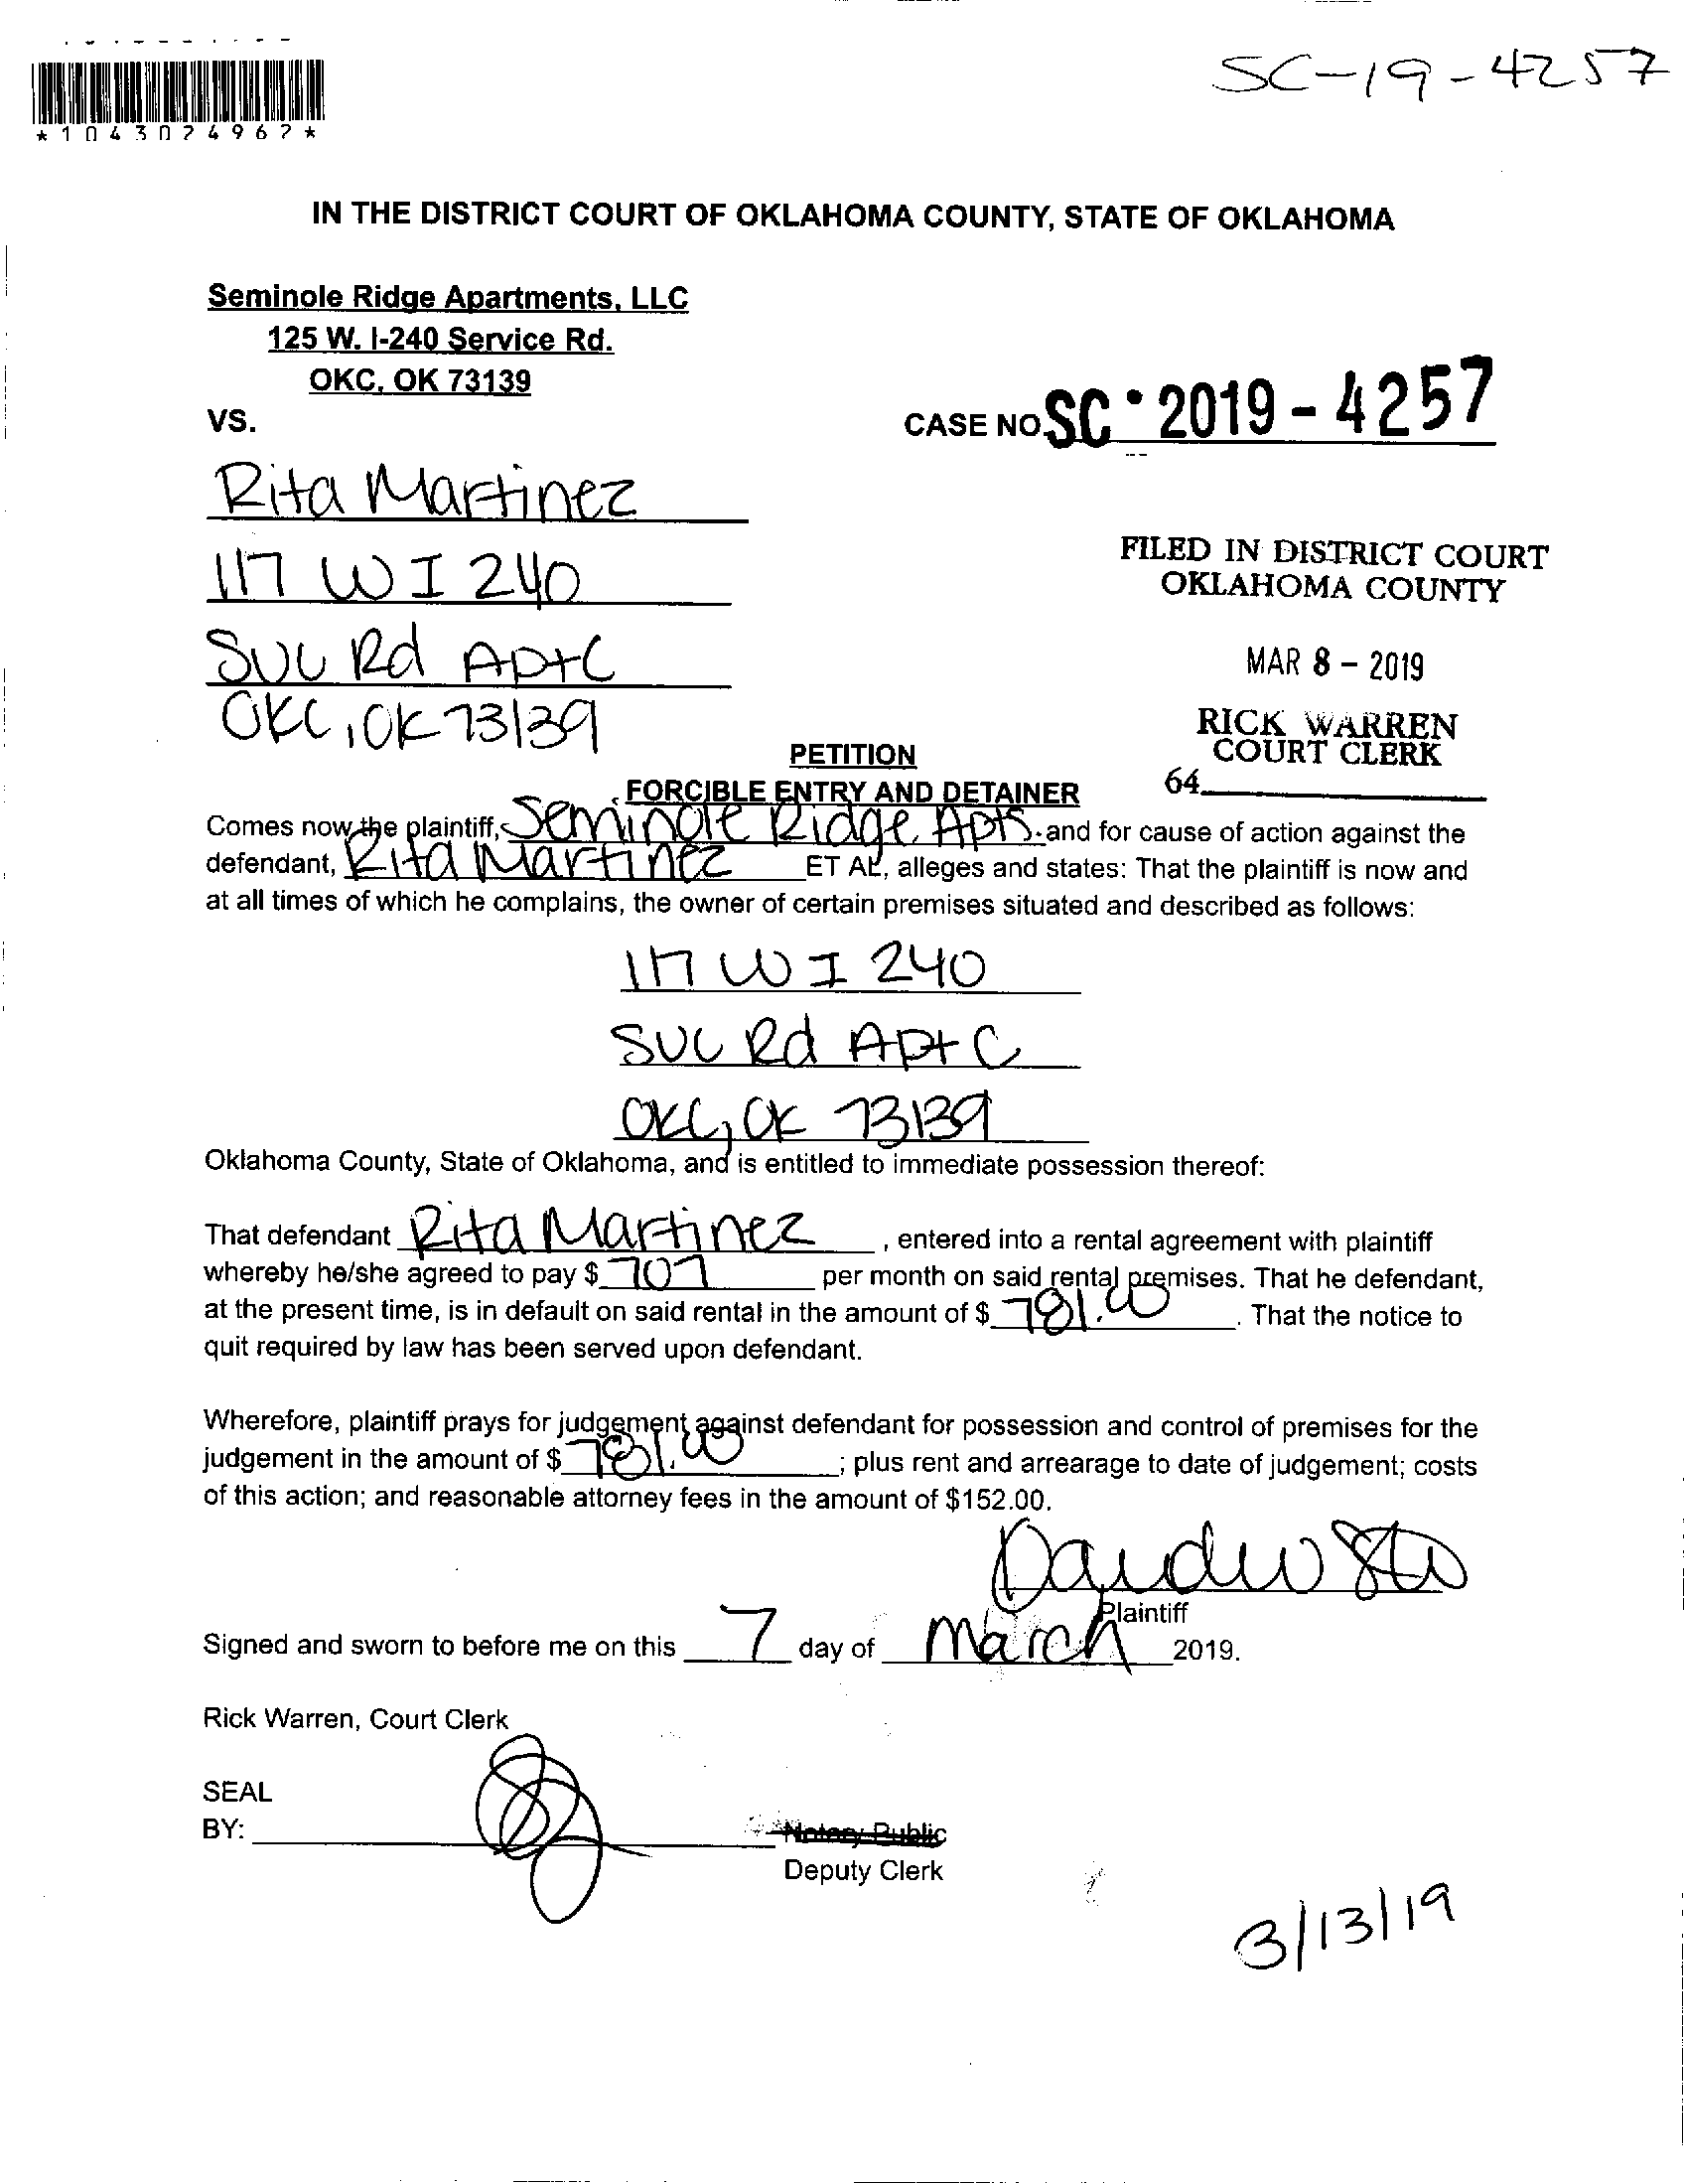 SC-19-4257
*1043024967*
IN THE DISTRICT COURT OF OKLAHOMA COUNTY, STATE OF OKLAHOMA
Seminole Ridge Apartments, LLC
125 W. I-240 Service Rd.
OKC, OK 73139
VS.
CASE NO. SC • 2019 - 4257
Rita Martinez
117 W I 240
SVC Rd Apt C
OKC, OK 73139
FILED IN DISTRICT COURT
OKLAHOMA COUNTY
MAR 8 - 2019
RICK WARREN
COURT CLERK
64
PETITION
FORCIBLE ENTRY AND DETAINER
Comes now the plaintiff, Seminole Ridge Apts. and for cause of action against the
defendant, Rita Martinez ET AL, alleges and states: That the plaintiff is now and
at all times of which he complains, the owner of certain premises situated and described as follows:
117 W I 240
SVC Rd Apt C
OKC, OK 73139
Oklahoma County, State of Oklahoma, and is entitled to immediate possession thereof:
That defendant Rita Martinez, entered into a rental agreement with plaintiff
whereby he/she agreed to pay $ 707 per month on said rental premises. That he defendant,
at the present time, is in default on said rental in the amount of $ 781.00. That the notice to
quit required by law has been served upon defendant.
Wherefore, plaintiff prays for judgement against defendant for possession and control of premises for the
judgement in the amount of $ 781.00; plus rent and arrearage to date of judgement; costs
of this action; and reasonable attorney fees in the amount of $152.00.
Plaintiff
Signed and sworn to before me on this 7 day of March 2019.
Rick Warren, Court Clerk
SEAL
BY:
Notary Public
Deputy Clerk
3/13/19